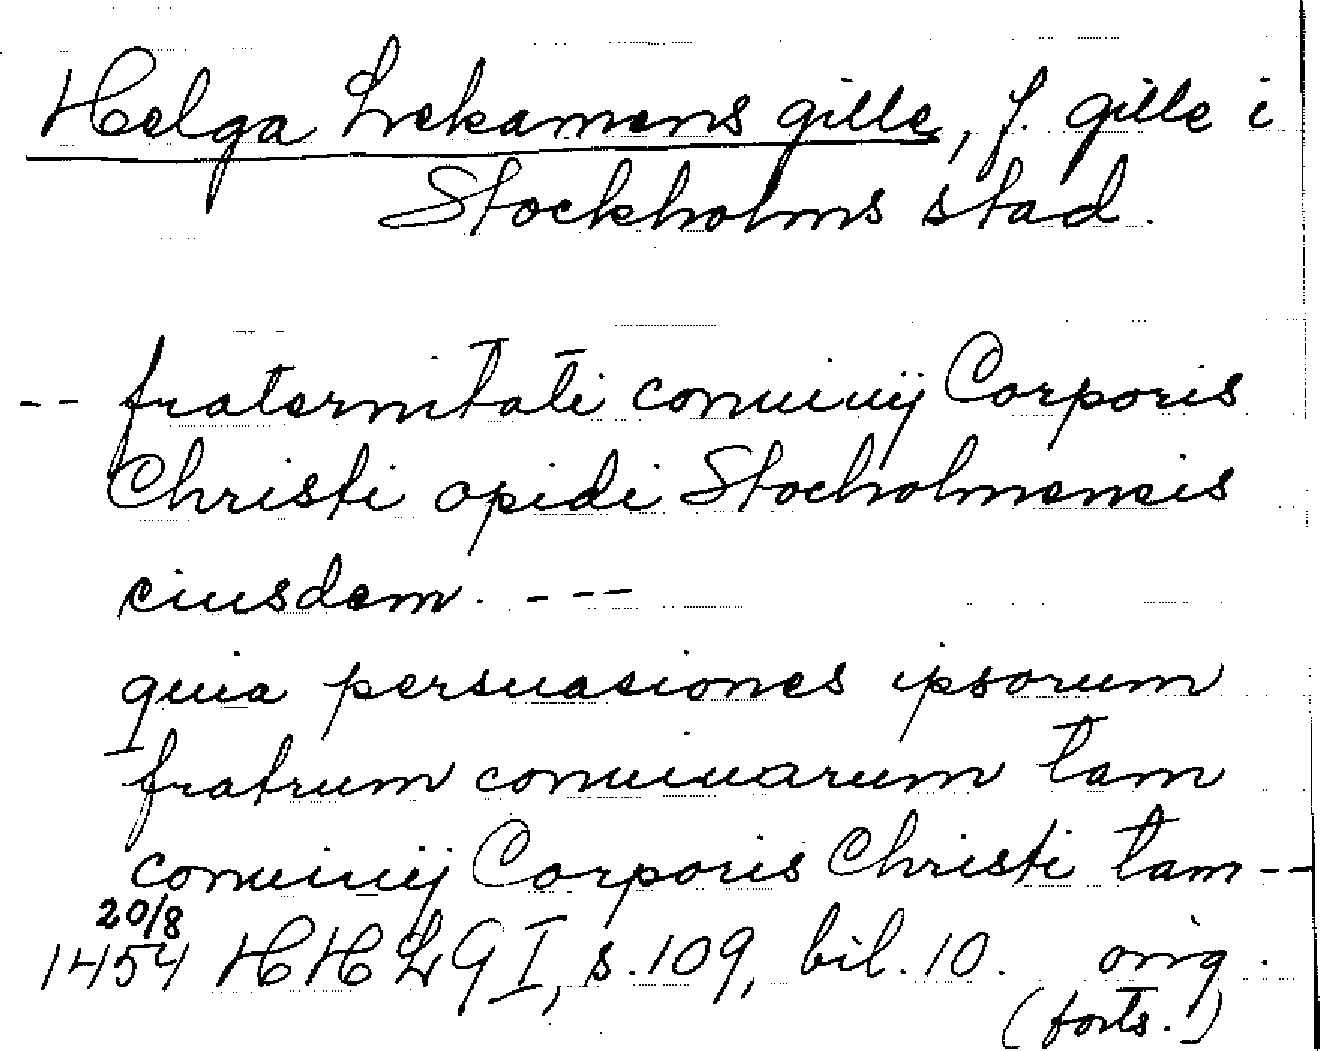 Helga Lekamens gille, f. gille i
Stockholms stad.
-- fraternitati conuiuij Corporis
Christi opidi Stocholmensis
eiusdem. ---
quia persuasiones ipsorum
fratrum conuiuarum tam
conuiuij Corporis Christi tam --
20/8
1454 HHLG I, s. 109, bil. 10. orig.
(forts.)